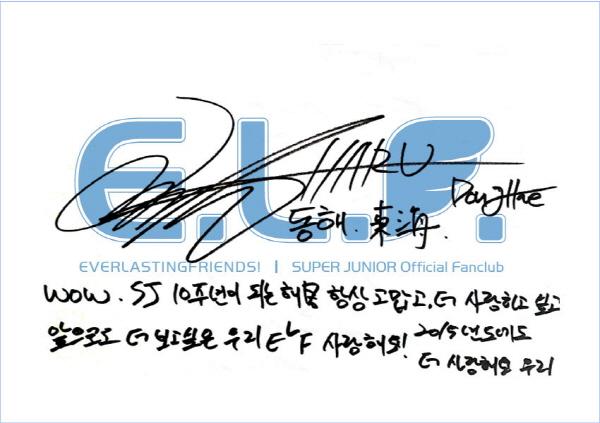 E.L.F.
HARU
DongHae
동해. 東海.
EVERLASTINGFRIENDS! | SUPER JUNIOR Official Fanclub
WOW. SJ 10주년이 되는 해 항상 고맙고, 더 사랑하고 보고
앞으로도 더 보고싶은 우리 ELF 사랑해요!
2015년도에도
더 사랑해요 우리